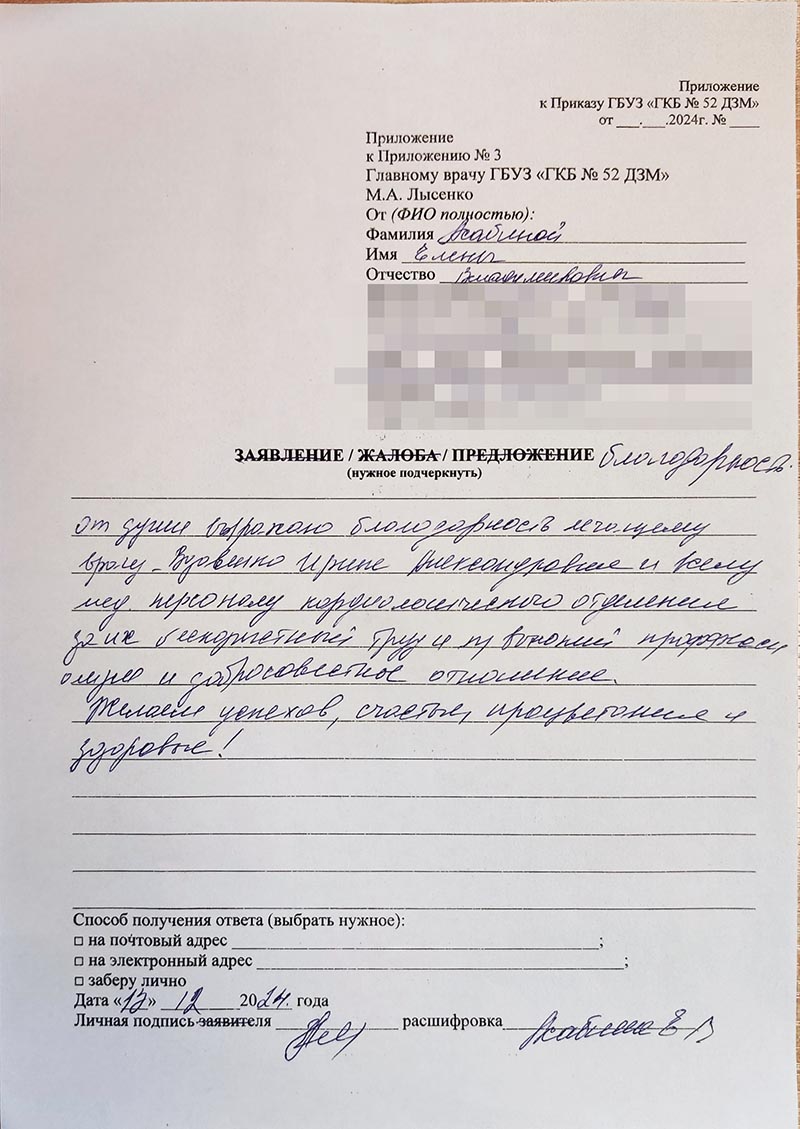 Приложение
к Приказу ГБУЗ «ГКБ № 52 ДЗМ»
от ___.___.2024г. № ____
Приложение
к Приложению № 3
Главному врачу ГБУЗ «ГКБ № 52 ДЗМ»
М.А. Лысенко
От (ФИО полностью):
Фамилия
Имя Елены
Отчество Владимировны
ЗАЯВЛЕНИЕ / ЖАЛОБА / ПРЕДЛОЖЕНИЕ благодарность.
(нужное подчеркнуть)
от души выражаю благодарность лечащему
врачу - Вдовенко Ирине Александровне и всему
мед. персоналу кардиологического отделения
за их бескорыстный труд и высокий професси
олизм и добросовестное отношение.
Желаем успехов, счастья, процветания и
здоровья!
Способ получения ответа (выбрать нужное):
□ на почтовый адрес ;
□ на электронный адрес ;
□ заберу лично
Дата «13» 12 2024. года
Личная подпись заявителя расшифровка Е В